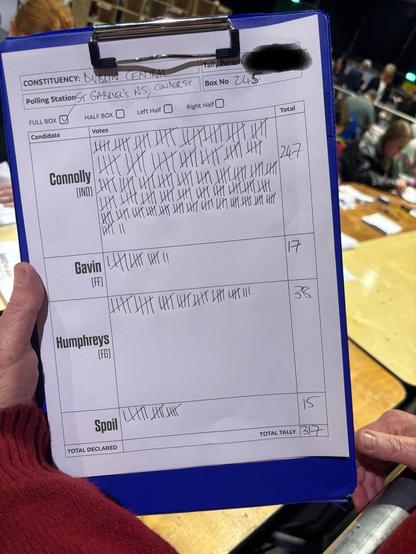 Tally Person
CONSTITUENCY: DUBLIN CENTRAL
Box No 245
Polling Station ST GABRIEL'S NS, COWPER ST
FULL BOX ☑ HALF BOX ☐ Left Half ☐ Right Half ☐
Candidate Votes Total
Connolly 247
(IND)
Gavin 17
(FF)
Humphreys 38
(FG)
Spoil 15
TOTAL DECLARED TOTAL TALLY 317